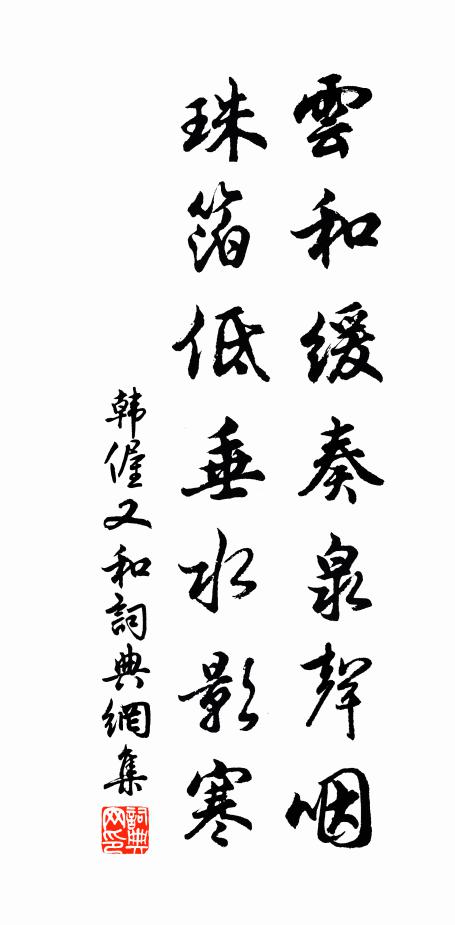 雲和緩奏泉聲咽
珠箔低垂水影寒
韩偓又和詞典網集
詞典网印